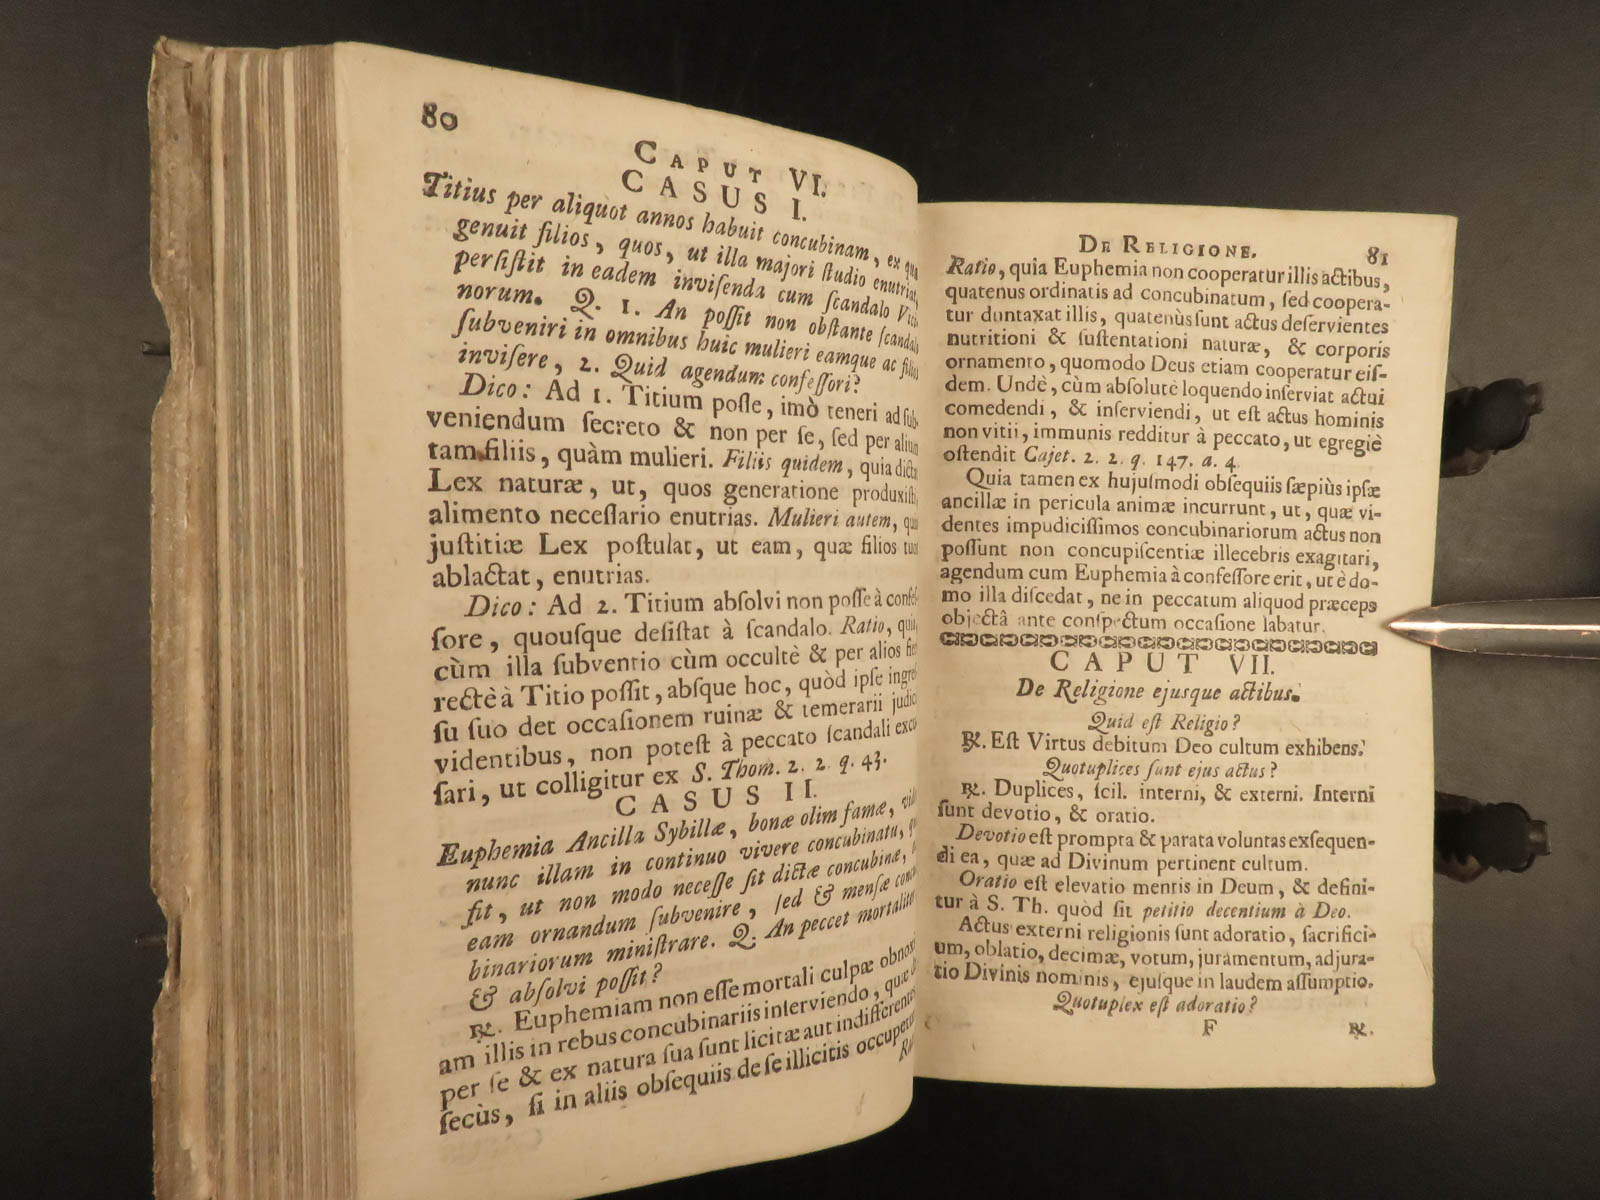 80
CAPUT VI.
CASUS I.
Titius per aliquot annos habuit concubinam, ex qua
genuit filios, quos, ut illa majori ſtudio enutriat,
perſiſtit in eadem inviſenda cum ſcandalo Vici-
norum. Q. 1. An poſſit non obſtante ſcandalo
ſubveniri in omnibus huic mulieri eamque ac filios
inviſere, 2. Quid agendum confeſſori?
Dico: Ad 1. Titium poſſe, imò teneri ad ſub-
veniendum ſecreto & non per ſe, ſed per alium
tam filiis, quàm mulieri. Filiis quidem, quia dictat
Lex naturæ, ut, quos generatione produxiſti,
alimento neceſſario enutrias. Mulieri autem, quia
juſtitiæ Lex poſtulat, ut eam, quæ filios tuos
ablactat, enutrias.
Dico: Ad 2. Titium abſolvi non poſſe à confeſ-
ſore, quouſque deſiſtat à ſcandalo. Ratio, quia,
cùm illa ſubventio cùm occultè & per alios fieri
rectè à Titio poſſit, abſque hoc, quòd ipſe ingreſ-
ſu ſuo det occaſionem ruinæ & temerarii judicii
videntibus, non poteſt à peccato ſcandali excu-
ſari, ut colligitur ex S. Thom. 2. 2. q. 43.
CASUS II.
Euphemia Ancilla Sybillæ, bonæ olim famæ,
nunc illam in continuo vivere concubinatu,
fit, ut non modo neceſſe ſit dictæ concubinæ,
eam ornandum ſubvenire, ſed & menſæ concu-
binariorum miniſtrare. Q. An peccet mortaliter
& abſolvi poſſit?
℞. Euphemiam non eſſe mortali culpæ obnoxi-
am illis in rebus concubinariis inſerviendo, quæ
per ſe & ex natura ſua ſunt licitæ aut indifferentes
ſecùs, ſi in aliis obſequiis de ſe illicitis occupetur.
Ra-
DE RELIGIONE. 81
Ratio, quia Euphemia non cooperatur illis actibus,
quatenus ordinatis ad concubinatum, ſed coopera-
tur duntaxat illis, quatenùs ſunt actus deſervientes
nutritioni & ſuſtentationi naturæ, & corporis
ornamento, quomodo Deus etiam cooperatur eiſ-
dem. Undè, cùm abſolutè loquendo inſerviat actui
comedendi, & inſerviendi, ut eſt actus hominis
non vitii, immunis redditur à peccato, ut egregiè
oſtendit Cajet. 2. 2. q. 147. a. 4.
Quia tamen ex hujuſmodi obſequiis ſæpiùs ipſæ
ancillæ in pericula animæ incurrunt, ut, quæ vi-
dentes impudiciſſimos concubinariorum actus non
poſſunt non concupiſcentiæ illecebris exagitari,
agendum cum Euphemia à confeſſore erit, ut è do-
mo illa diſcedat, ne in peccatum aliquod præceps
objectâ ante conſpectum occaſione labatur.
CAPUT VII.
De Religione ejusque actibus.
Quid eſt Religio?
℞. Eſt Virtus debitum Deo cultum exhibens.
Quotuplices ſunt ejus actus?
℞. Duplices, ſcil. interni, & externi. Interni
ſunt devotio, & oratio.
Devotio eſt prompta & parata voluntas exſequen-
di ea, quæ ad Divinum pertinent cultum.
Oratio eſt elevatio mentis in Deum, & defini-
tur à S. Th. quòd ſit petitio decentium à Deo.
Actus externi religionis ſunt adoratio, ſacrifici-
um, oblatio, decimæ, votum, juramentum, adjura-
tio Divinis nominis, ejuſque in laudem aſſumptio.
Quotuplex eſt adoratio?
F ℞.